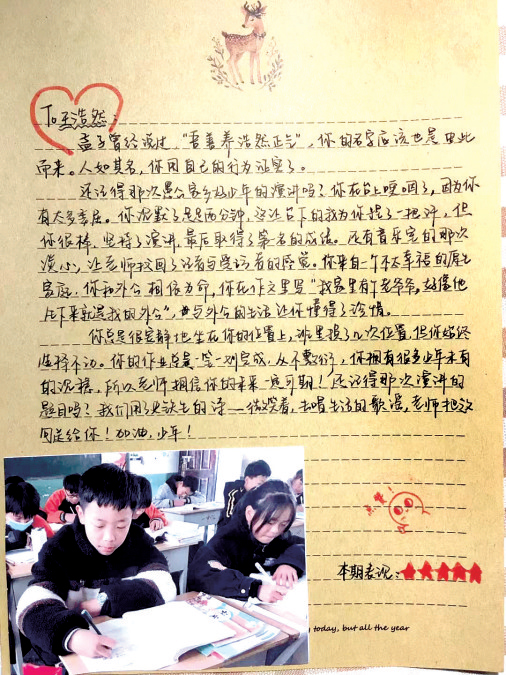 To 王浩然:
孟子曾经说过，“吾善养浩然正气”，你的名字应该也是由此
而来。人如其名，你用自己的行为证实了。
还记得那次 家乡好少年的演讲吗？你在台上哽咽了，因为你
有太多委屈。你沉默了足足两分钟，这让台下的我为你捏了一把汗，但
你很棒，坚持了演讲，最后取得了第一名的成绩。还有音乐室的那次
谈心，让老师找回了记者与受访者的感觉。你来自一个不太幸福的原生
家庭，你和外公相依为命，你在作文里写“我家里有个老爷爷，
下来就是我的外公”，与外公的生活让你懂得了珍惜。
你总是很安静地坐在你的位置上，班里换了几次位置，但你始终
选择不动。你的作业总是一笔一划完成，从不敷衍，你拥有很多少年未有
的沉稳，所以老师相信你的未来一定可期！还记得那次演讲的
题目吗？我们用了史铁生的诗——微笑着，去唱生活的歌谣，老师把这
句送给你！加油，少年！
本期表现：
today, but all the year